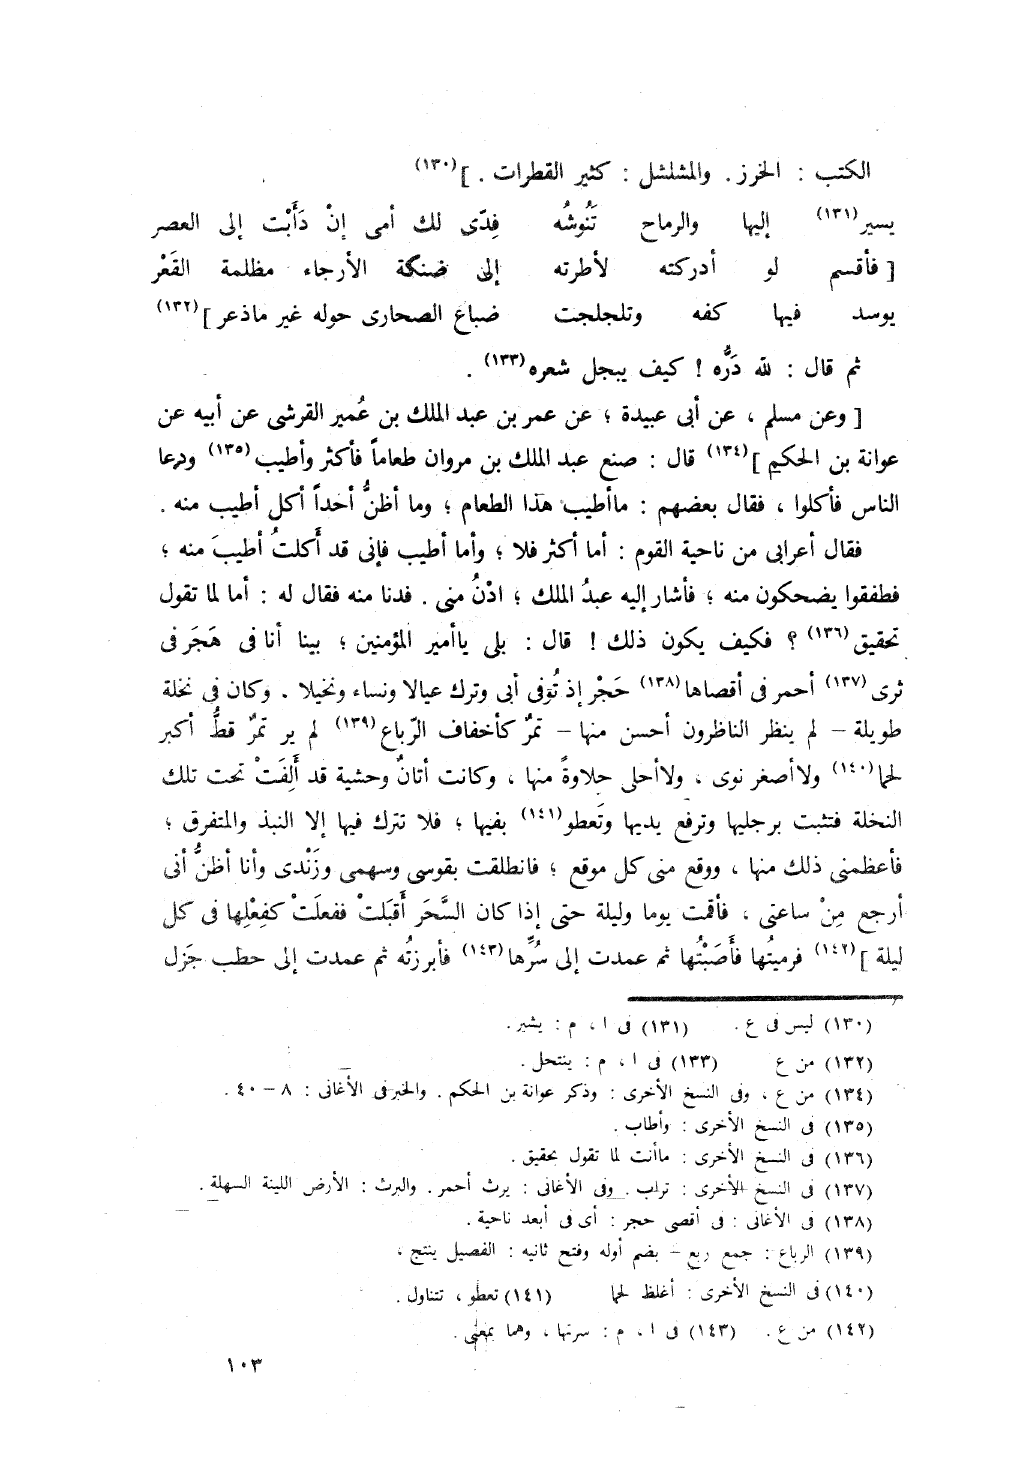 الكتب : الخرز . والمشلشل : كثير القطرات . ](١٣٠)
يسير(١٣١) إليها والرماح تَنُوشُه فِدًى لك أمى إنْ دَأَبْت إلى العصر
[ فأقسم لو أدركته لأطرته إلى ضنكة الأرجاء مظلمة القَعْر
يوسد فيها كفه وتلجلجت ضباع الصحارى حوله غير ماذعر ](١٣٢)
ثم قال : لله دَرُّه ! كيف يبجل شعره(١٣٣) .
[ وعن مسلم ، عن أبى عبيدة ؛ عن عمر بن عبد الملك بن عُمير القرشى عن أبيه عن
عوانة بن الحكيم ](١٣٤) قال : صنع عبد الملك بن مروان طعاماً فأكثر وأطيب(١٣٥) ودعا
الناس فأكلوا ، فقال بعضهم : ماأطيب هذا الطعام ؛ وما أظنُّ أحداً أكل أطيب منه .
فقال أعرابى من ناحية القوم : أما أكثر فلا ؛ وأما أطيب فإنى قد أَكلتُ أطيبَ منه ؛
فطفقوا يضحكون منه ؛ فأشار إليه عبدُ الملك ؛ ادْنُ منى . فدنا منه فقال له : أما لما تقول
تحقيق(١٣٦) ؟ فكيف يكون ذلك ! قال : بلى ياأمير المؤمنين ؛ بينا أنا فى هَجَر فى
ثرى(١٣٧) أحمر فى أقصاها(١٣٨) حَجْر إذ تُوفى أبى وترك عيالا ونساء ونخيلا . وكان فى نخلة
طويلة – لم ينظر الناظرون أحسن منها – تمرٌ كأخفاف الرّباع(١٣٩) لم ير تمرٌ قطُّ أكبر
لحما(١٤٠) ولاأصغر نوى ، ولاأحلى حلاوةً منها ، وكانت أتانٌ وحشية قد أَلِفَتْ تحت تلك
النخلة فتثبت برجليها وترفع يديها وتَعطو(١٤١) بفيها ؛ فلا تترك فيها إلا النبذ والمتفرق ؛
فأعظمنى ذلك منها ، ووقع منى كل موقع ؛ فانطلقت بقوسى وسهمى وزَنْدى وأنا أظنُّ أنى
أرجع مِنْ ساعتى ، فأقمت يوما وليلة حتى إذا كان السَّحَر أَقبَلتْ ففعلَتْ كفِعْلِها فى كل
ليلة ](١٤٢) فرميتُها فأَصَبْتُها ثم عمدت إلى سُرِّها(١٤٣) فأبرزتُه ثم عمدت إلى حطب جَزل
(١٣٠) ليس فى ع . (١٣١) فى ا ، م : يشير .
(١٣٢) من ع (١٣٣) فى ا ، م : ينتحل .
(١٣٤) من ع ، وفى النسخ الأخرى : وذكر عوانة بن الحكم . والخبر فى الأغانى : ٨ – ٤٠ .
(١٣٥) فى النسخ الأخرى : وأطاب .
(١٣٦) فى النسخ الأخرى : ماأنت لما تقول بحقيق .
(١٣٧) فى النسخ الأخرى : تراب . وفى الأغانى : برث أحمر . والبرث : الأرض اللينة السهلة .
(١٣٨) فى الأغانى : فى أقصى حجر : أى فى أبعد ناحية .
(١٣٩) الرباع : جمع ربع – بضم أوله وفتح ثانيه : الفصيل ينتج ،
(١٤٠) فى النسخ الأخرى : أغلظ لحما (١٤١) تعطو ، تتناول .
(١٤٢) من ع . (١٤٣) فى ا ، م : سرتها ، وهما بمعنى .
١٠٣